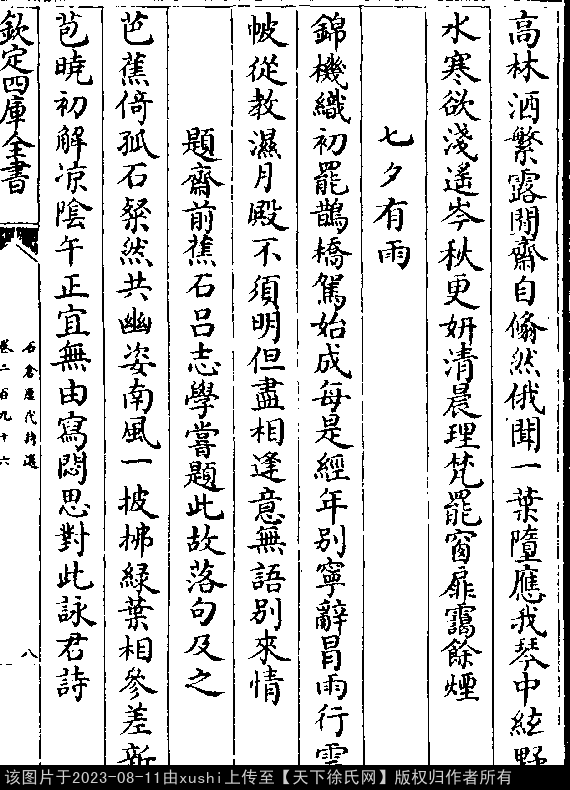 高林洒繁露閒齋自翛然俄聞一葉墮應我琴中絃野
水寒欲淺遙岑秋更妍清晨理梵罷窗扉靄餘煙
七夕有雨
錦機織初罷鵲橋駕始成每是經年别寧辭冒雨行雲
帔從教濕月殿不須明但盡相逢意無語别來情
題齋前蕉石吕志學嘗題此故落句及之
芭蕉倚孤石粲然共幽姿南風一披拂緑葉相參差新
苞曉初解凉陰午正宜無由寫悶思對此詠君詩
欽定四庫全書
石倉歷代詩選
卷二百九十六
八
该图片于2023-08-11由xushi上传至【天下徐氏网】版权归作者所有